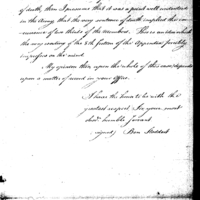 of death, then I presume that it was a point well understood
in the Army that the very sentence of death implied the con-
currence of two thirds of the Members. There is an idea which
the very reading of the 8th Section of the Appendix forcibly
impresses on the mind.
My opinion then upon the whole of this case depends
upon a matter of usual in your office.
I have the honor to be with the
greatest respect Sir your most
obed. humble servant
signed, Ben Stoddert